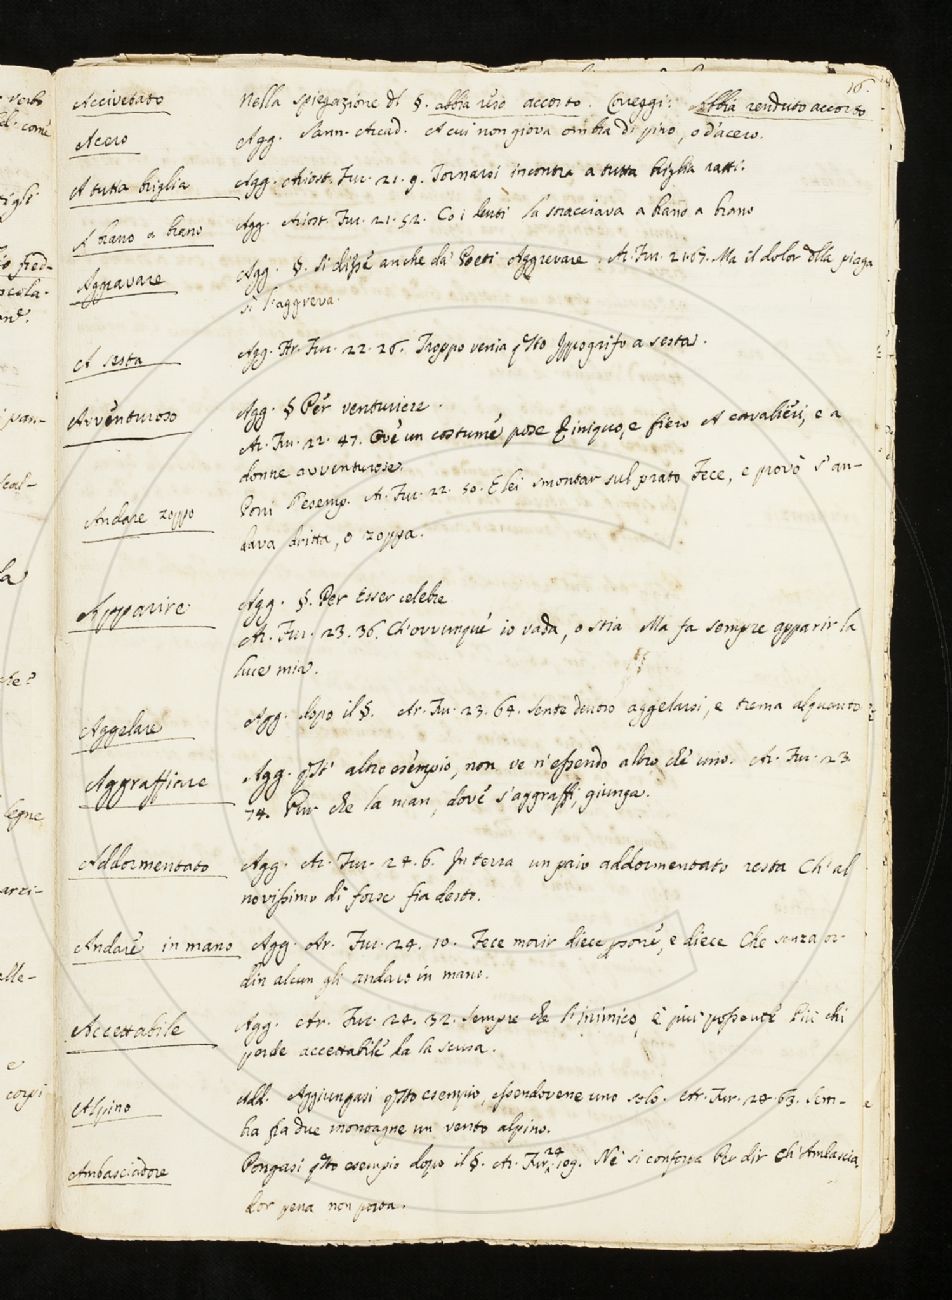 16.
Accivettato Nella spiegazione di §. abbia reso accorto. Coreggi: Abbia renduto accorto
Acero Agg. Sann. Arcad. A cui non giova ombra di pino, o d'acero.
A tutta briglia Agg. Ariost. Fur. 21. 9. Tornarsi incontra a tutta briglia ratti.
A brano a brano Agg. Ariost. Fur. 21. 52. Co i denti la stracciava a brano a brano
Aggravare Agg. §. Si disse anche da' Poeti Aggrevare. Ar. Fur. 21. 67. Ma il dolor della piaga
sì l'aggreva.
A sesta Agg. Ar. Fur. 22. 26. Troppo venia qsto Ippogrifo a sesta.
Avventuroso Agg. § Per venturiere.
Ar. Fur. 22. 47. Ov'è un costume pose iniquo, e fiero A cavalieri, e a
donne avventurose.
Andare zoppo Poni l'esemp. A. Fur. 22. 50. E lei smontar sul prato Fece, e provò s'an-
dava dritta, o zoppa.
Apparire Agg. §. Per Esser celebre
Ar. Fur. 23. 36. Ch'ovvunque io vada, o stia Ma fa sempre apparir la
luce mia.
Aggelare Agg. dopo il §. Ar. Fur. 23. 64. Sente dentro aggelarsi, e trema alquanto
Aggraffiare Agg. qsto altro esempio, non ve n'essendo altro che uno. Ar. Fur. 23
74. Pur che la man, dove s'aggraffi, giunga.
Addormentato Agg. Ar. Fur. 24. 6. In terra un paio addormentato resta Ch'al
novissimo dì forse fia desto.
Andare in mano Agg. Ar. Fur. 24. 10. Fece morir diece persone, e diece Che senza or-
din alcun gli andaro in mano.
Accettabile Agg. Ar. Fur. 24. 32. Sempre che l'inimico è più possente Più chi
perde accettabile ha la scusa.
Alpino Add. Aggiungasi qsto esempio, essendovene uno solo. Ar. Fur. 24. 63. Sem-
bra fra due montagne un vento alpino.
Ambasciadore Pongasi qsto esempio dopo il §. Ar. Fur. 24. 109. Nè si conforta Per dir ch'Ambascia
dor pena non porta.